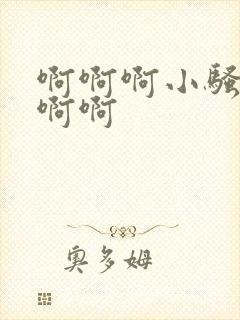 啊啊啊小骚
啊啊
奥多姆